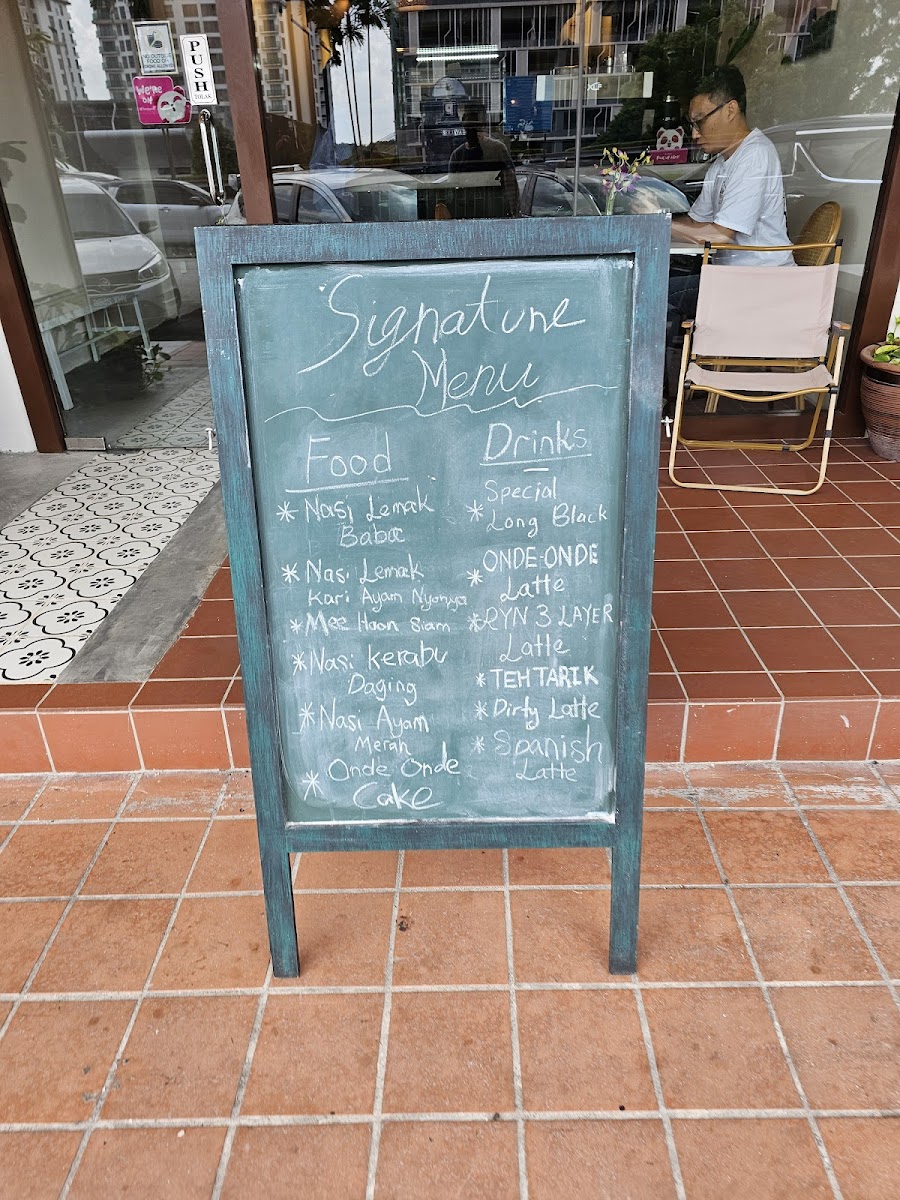 PUSH
TOLAK
We're
on
Signature
Menu
Food
* Nasi Lemak
Baba
* Nasi Lemak
Kari Ayam Nyonya
* Mee Hoon Siam
* Nasi Kerabu
Daging
* Nasi Ayam
Merah
* Onde Onde
Cake
Drinks
* Special
Long Black
* ONDE-ONDE
Latte
* RYN 3 LAYER
Latte
* TEH TARIK
* Dirty Latte
* Spanish
Latte